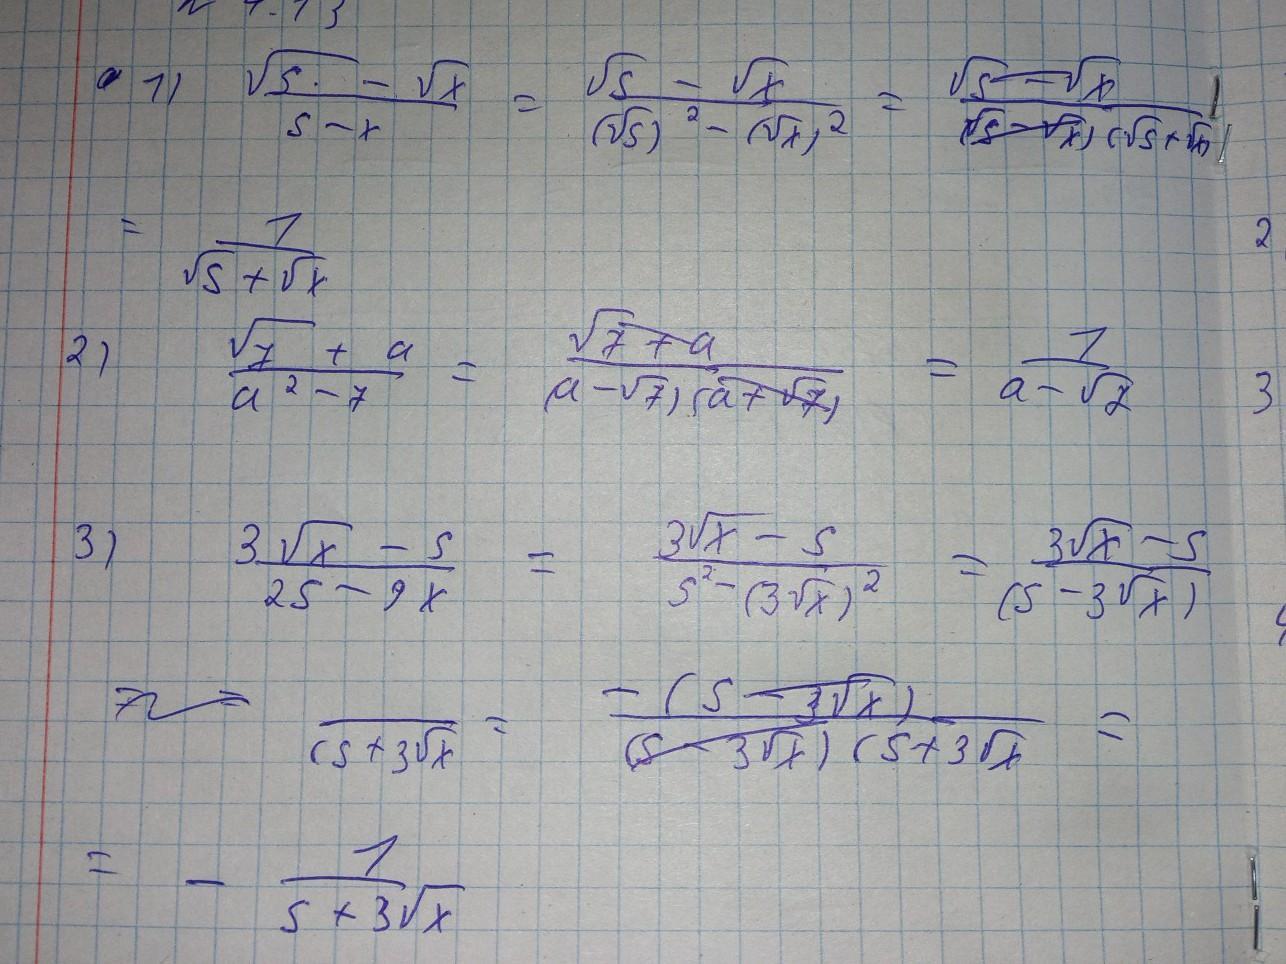 № 1.13
1) (√5 - √x)/(5 - x) = (√5 - √x)/((√5)² - (√x)²) = (√5 - √x)/((√5 - √x)(√5 + √x))
= 1/(√5 + √x)
2) (√7 + a)/(a² - 7) = (√7 + a)/((a - √7)(a + √7)) = 1/(a - √7)
3) (3√x - 5)/(25 - 9x) = (3√x - 5)/(5² - (3√x)²) = (3√x - 5)/(5 - 3√x)
/(5 + 3√x) = -(5 - 3√x)/((5 - 3√x)(5 + 3√x =
= - 1/(5 + 3√x)
2
3